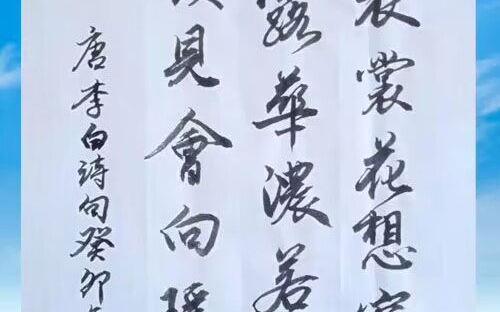 衣裳花想容
露華濃若
見會向瑤
唐李白詩句癸卯